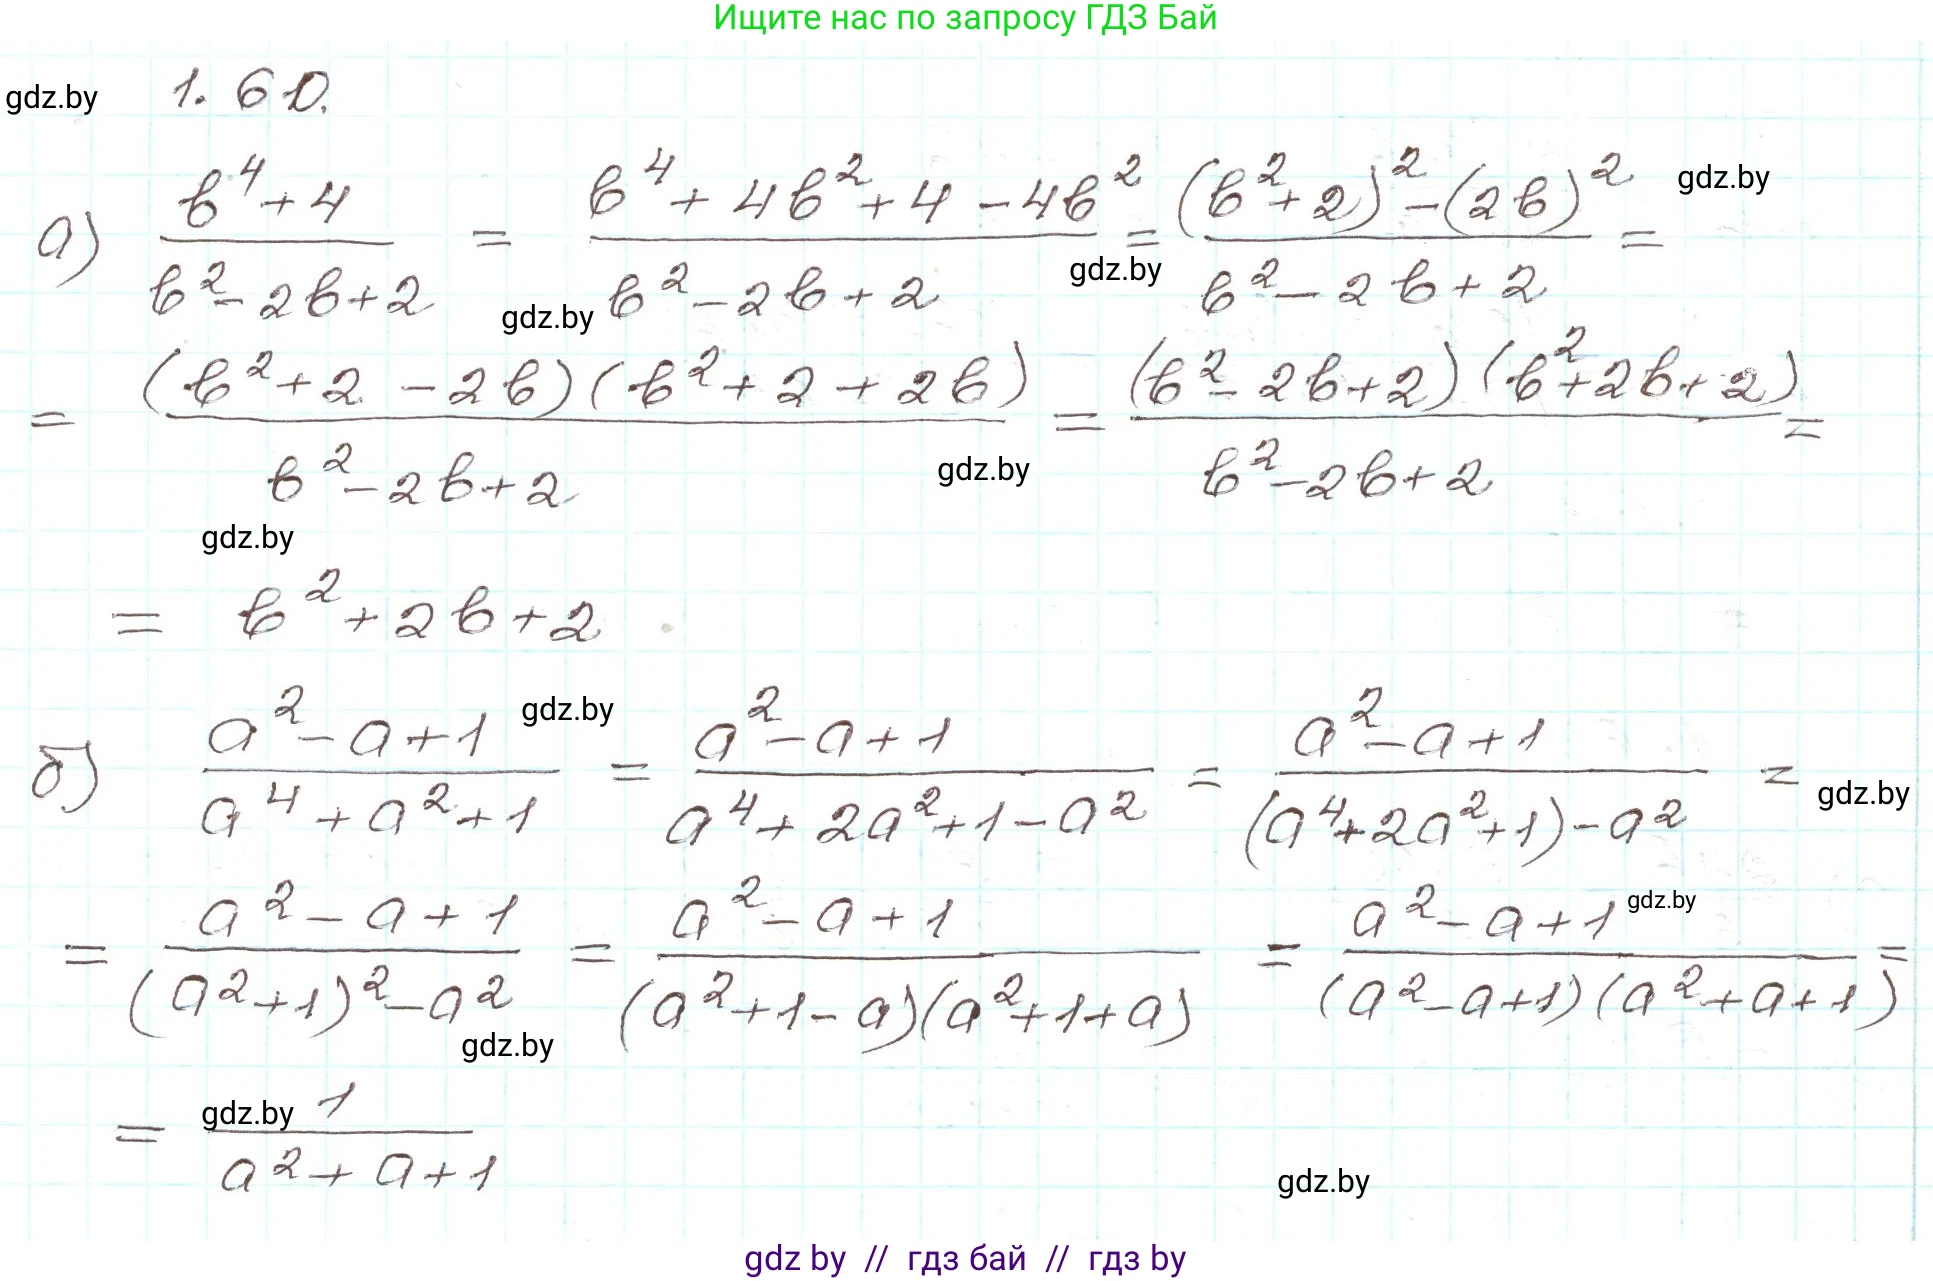 Ищите нас по запросу ГДЗ Бай
gdz.by 1.60.
а) (b^4+4)/(b^2-2b+2) = (b^4+4b^2+4-4b^2)/(b^2-2b+2) = ((b^2+2)^2-(2b)^2)/(b^2-2b+2) = gdz.by
gdz.by gdz.by
= ((b^2+2-2b)(b^2+2+2b))/(b^2-2b+2) = ((b^2-2b+2)(b^2+2b+2))/(b^2-2b+2) =
gdz.by
gdz.by
= b^2+2b+2
б) (a^2-a+1)/(a^4+a^2+1) = (a^2-a+1)/(a^4+2a^2+1-a^2) = (a^2-a+1)/((a^4+2a^2+1)-a^2) =
gdz.by gdz.by
= (a^2-a+1)/((a^2+1)^2-a^2) = (a^2-a+1)/((a^2+1-a)(a^2+1+a)) = (a^2-a+1)/((a^2-a+1)(a^2+a+1)) =
gdz.by gdz.by
= 1/(a^2+a+1)
gdz.by gdz.by
gdz by // гдз бай // гдз by